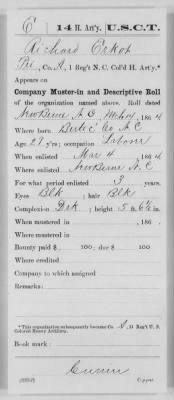 E | 14 H. Art'y. | U.S.C.T.
Richard Erkot
Pvt, Co. A, 1 Reg't N. C. Col'd H. Art'y.*
Appears on
Company Muster-in and Descriptive Roll
of the organization named above. Roll dated
New Berne N. C., 1864
Where born Co N.C
Age 27 y'rs; occupation Laborer
When enlisted Mar 4, 1864
Where enlisted New Berne N. C
For what period enlisted 3 years.
Eyes Blk; hair Blk
Complexion Drk; height 5 ft. 6½ in.
When mustered in, 186
Where mustered in
Bounty paid $ 100; due $ 100
Where credited
Company to which assigned
Remarks:
*This organization subsequently became Co. A, 14 Reg't U. S.
Colored Heavy Artillery.
Book mark:
Copyist.